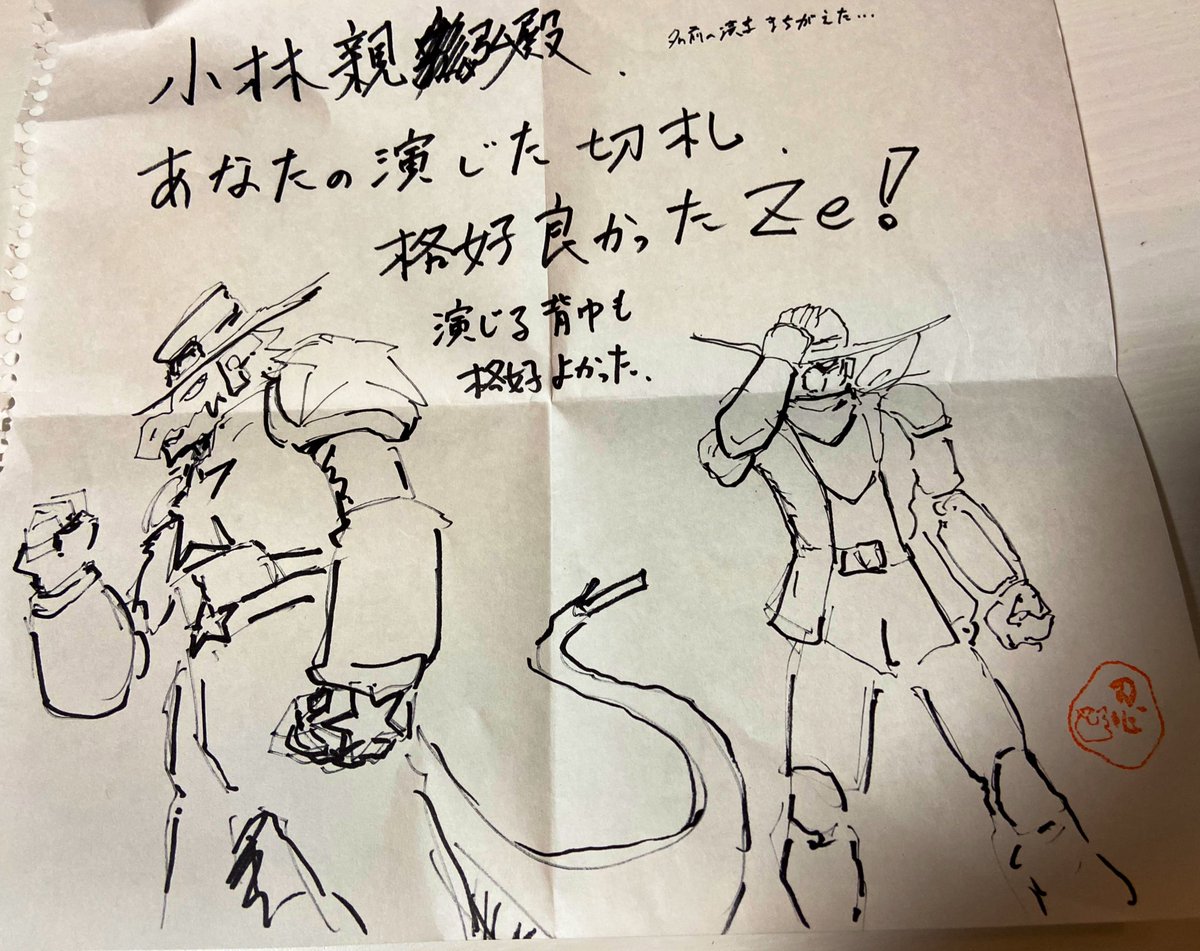 小林親弘殿.
名前の漢字まちがえた…
あなたの演じた切札.
格好良かったZe!
演じる背中も
格好よかった.
忍